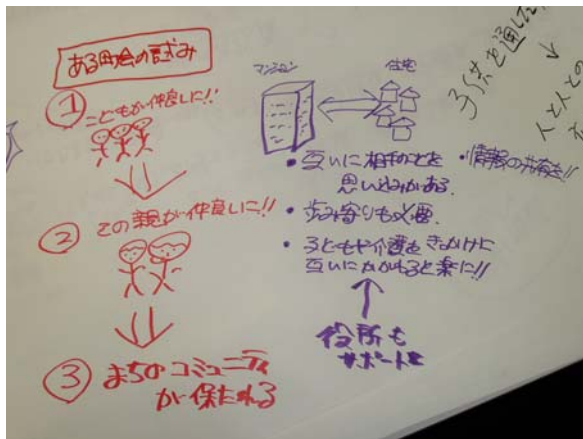 ある町会の試み
① こどもが仲良しに!!
② その親が仲良しに!!
③ まちのコミュニティ
が保たれる
マンション
住宅
・互いに相手のことを
思いこみがある.
・歩み寄りも必要.
・子どもや介護をきっかけに
互いにかかわると楽に!!
役所も
サポートを
・情報の共有を!!
子供を通して
人と人との